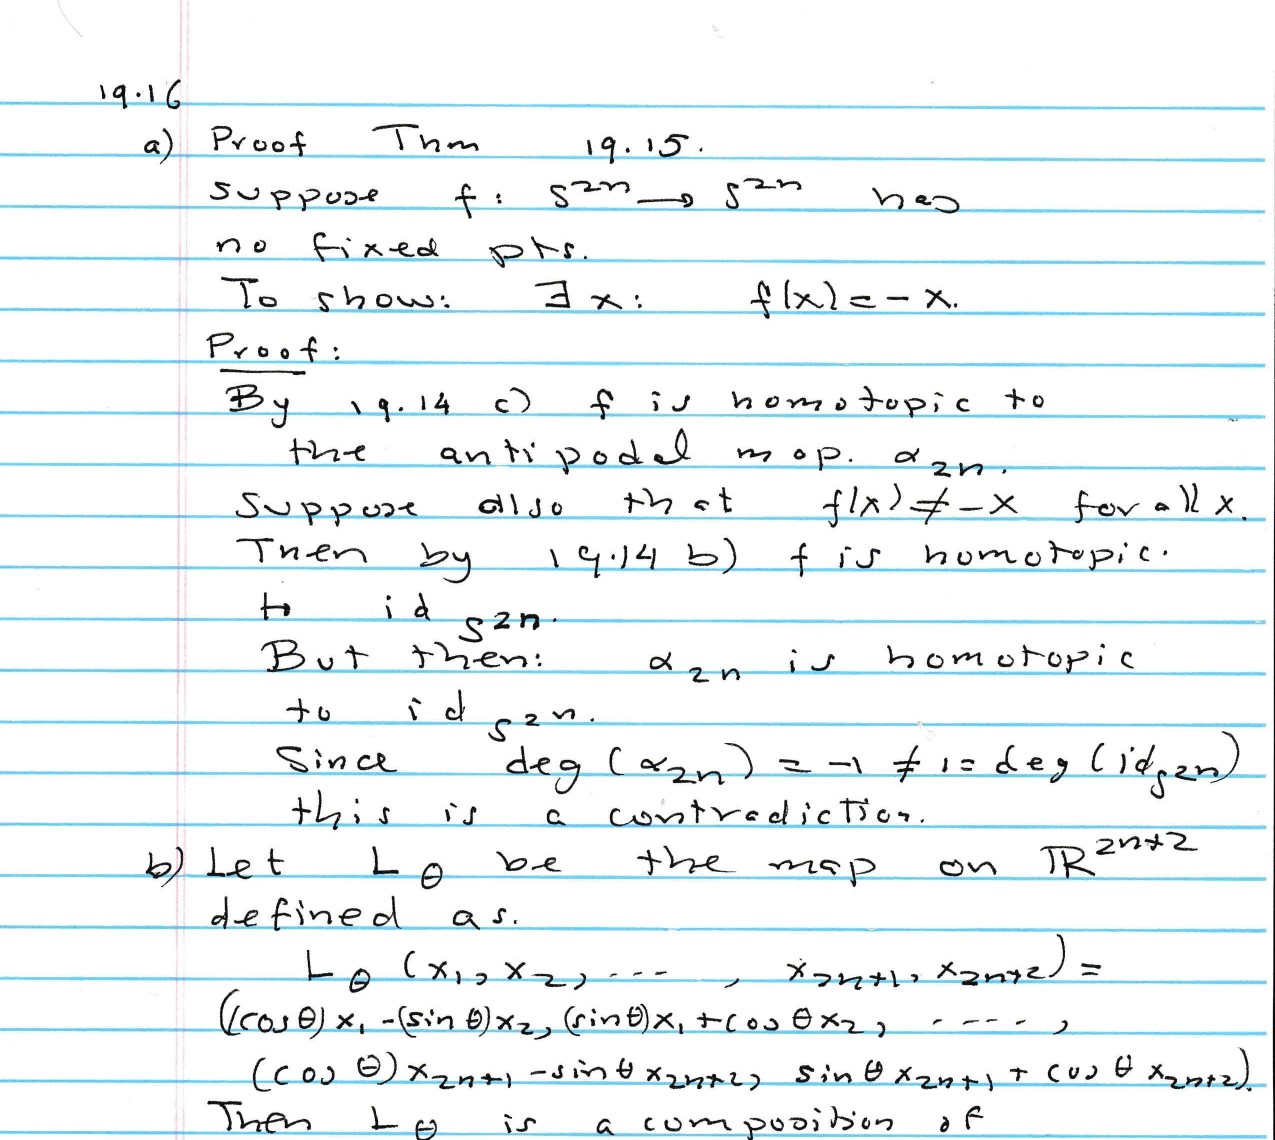 19.16
a) Proof Thm 19.15.
suppose f: S²ⁿ → S²ⁿ has
no fixed pts.
To show: ∃ x: f(x) = - x.
Proof:
By 19.14 c) f is homotopic to
the antipodal map. α₂ₙ.
Suppose also that f(x) ≠ - x for all x.
Then by 19.14 b) f is homotopic.
to id S²ⁿ.
But then: α₂ₙ is homotopic
to id S²ⁿ.
Since deg (α₂ₙ) = -1 ≠ 1 = deg (id S²ⁿ)
this is a contradiction.
b) Let L_θ be the map on ℝ²ⁿ⁺²
defined as.
L_θ (x₁, x₂, ---, x₂ₙ₊₁, x₂ₙ₊₂) =
((cos θ) x₁ - (sin θ) x₂, (sin θ) x₁ + cos θ x₂, ----,
(cos θ) x₂ₙ₊₁ - sin θ x₂ₙ₊₂, sin θ x₂ₙ₊₁ + cos θ x₂ₙ₊₂).
Then L_θ is a composition of